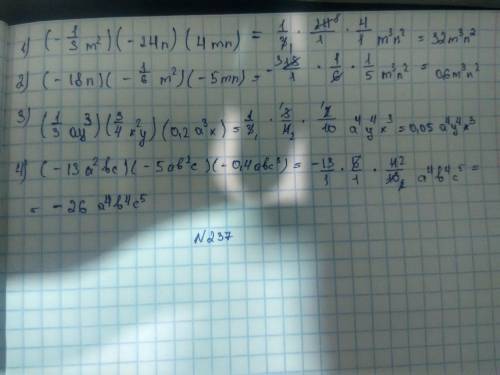 1) (-1/3 m²)(-24n)(4mn) = 1/3₁ · 24⁸/1 · 4/1 m³n² = 32m³n²
2) (-18n)(-1/6 m²)(-5mn) = -³18/1 · 1/6 · 1/5 m³n² = 0,6m³n²
3) (1/3 ay³)(3/4 x²y)(0,2a³x) = 1/3₁ · ¹3/4₂ · ¹2/10 a⁴y⁴x³ = 0,05a⁴y⁴x³
4) (-13a²bc)(-5ab²c)(-0,4abc³) = -13/1 · 5/1 · 4²/10₂ a⁴b⁴c⁵ =
= -26 a⁴b⁴c⁵
N237